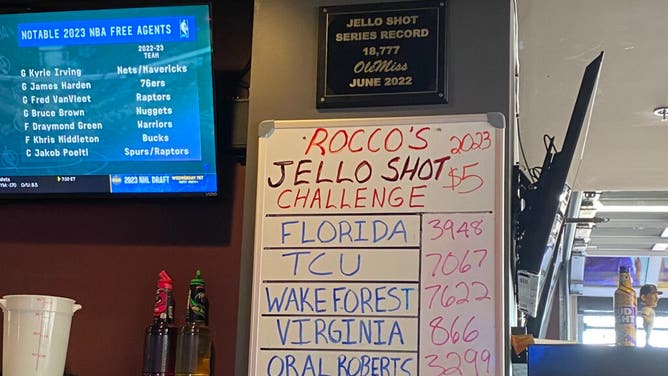 NOTABLE 2023 NBA FREE AGENTS
2022-23
TEAM
G Kyrie Irving Nets/Mavericks
G James Harden 76ers
G Fred VanVleet Raptors
G Bruce Brown Nuggets
F Draymond Green Warriors
F Khris Middleton Bucks
C Jakob Poeltl Spurs/Raptors
7:10 ET
2023 NHL DRAFT
JELLO SHOT
SERIES RECORD
18,777
Ole Miss
JUNE 2022
ROCCO'S 2023
JELLO SHOT $5
CHALLENGE
FLORIDA 3948
TCU 7067
WAKE FOREST 7622
VIRGINIA 866
ORAL ROBERTS 3299
BUD
LIGHT